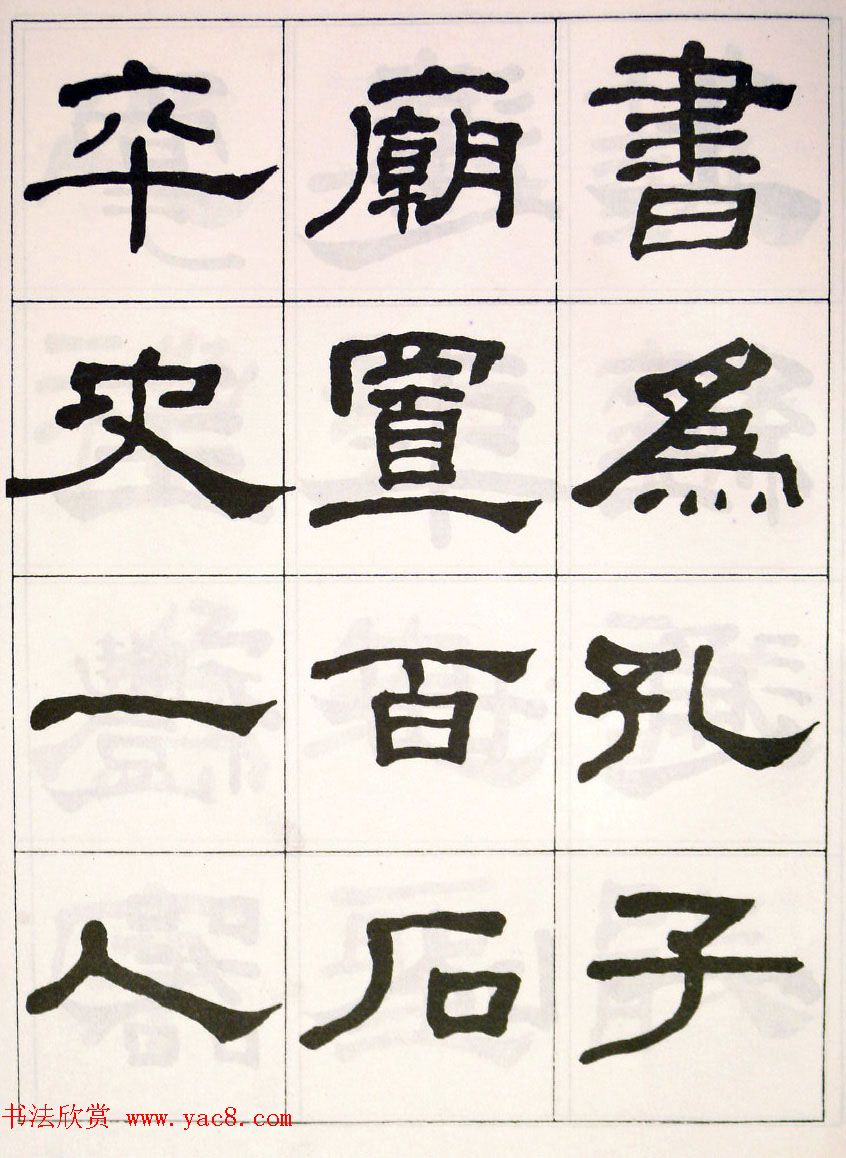 書爲孔子
廟置百石
卒史一人
书法欣赏 www.yac8.com